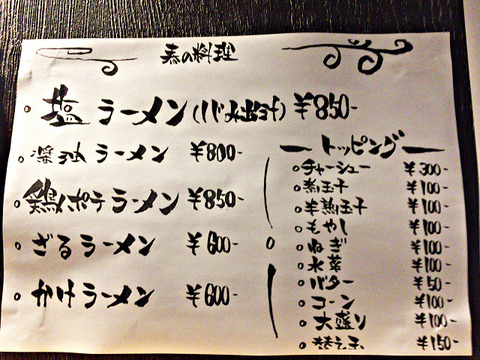 春の料理
塩ラーメン(しじみ出汁) ¥850-
醤油ラーメン ¥800-
鶏ポテラーメン ¥850-
ざるラーメン ¥600-
かけラーメン ¥600-
トッピング
チャーシュー ¥300-
煮玉子 ¥100-
半熟玉子 ¥100-
もやし ¥100-
ねぎ ¥100-
水菜 ¥100-
バター ¥50-
コーン ¥100-
大盛り ¥100-
替え玉 ¥150-